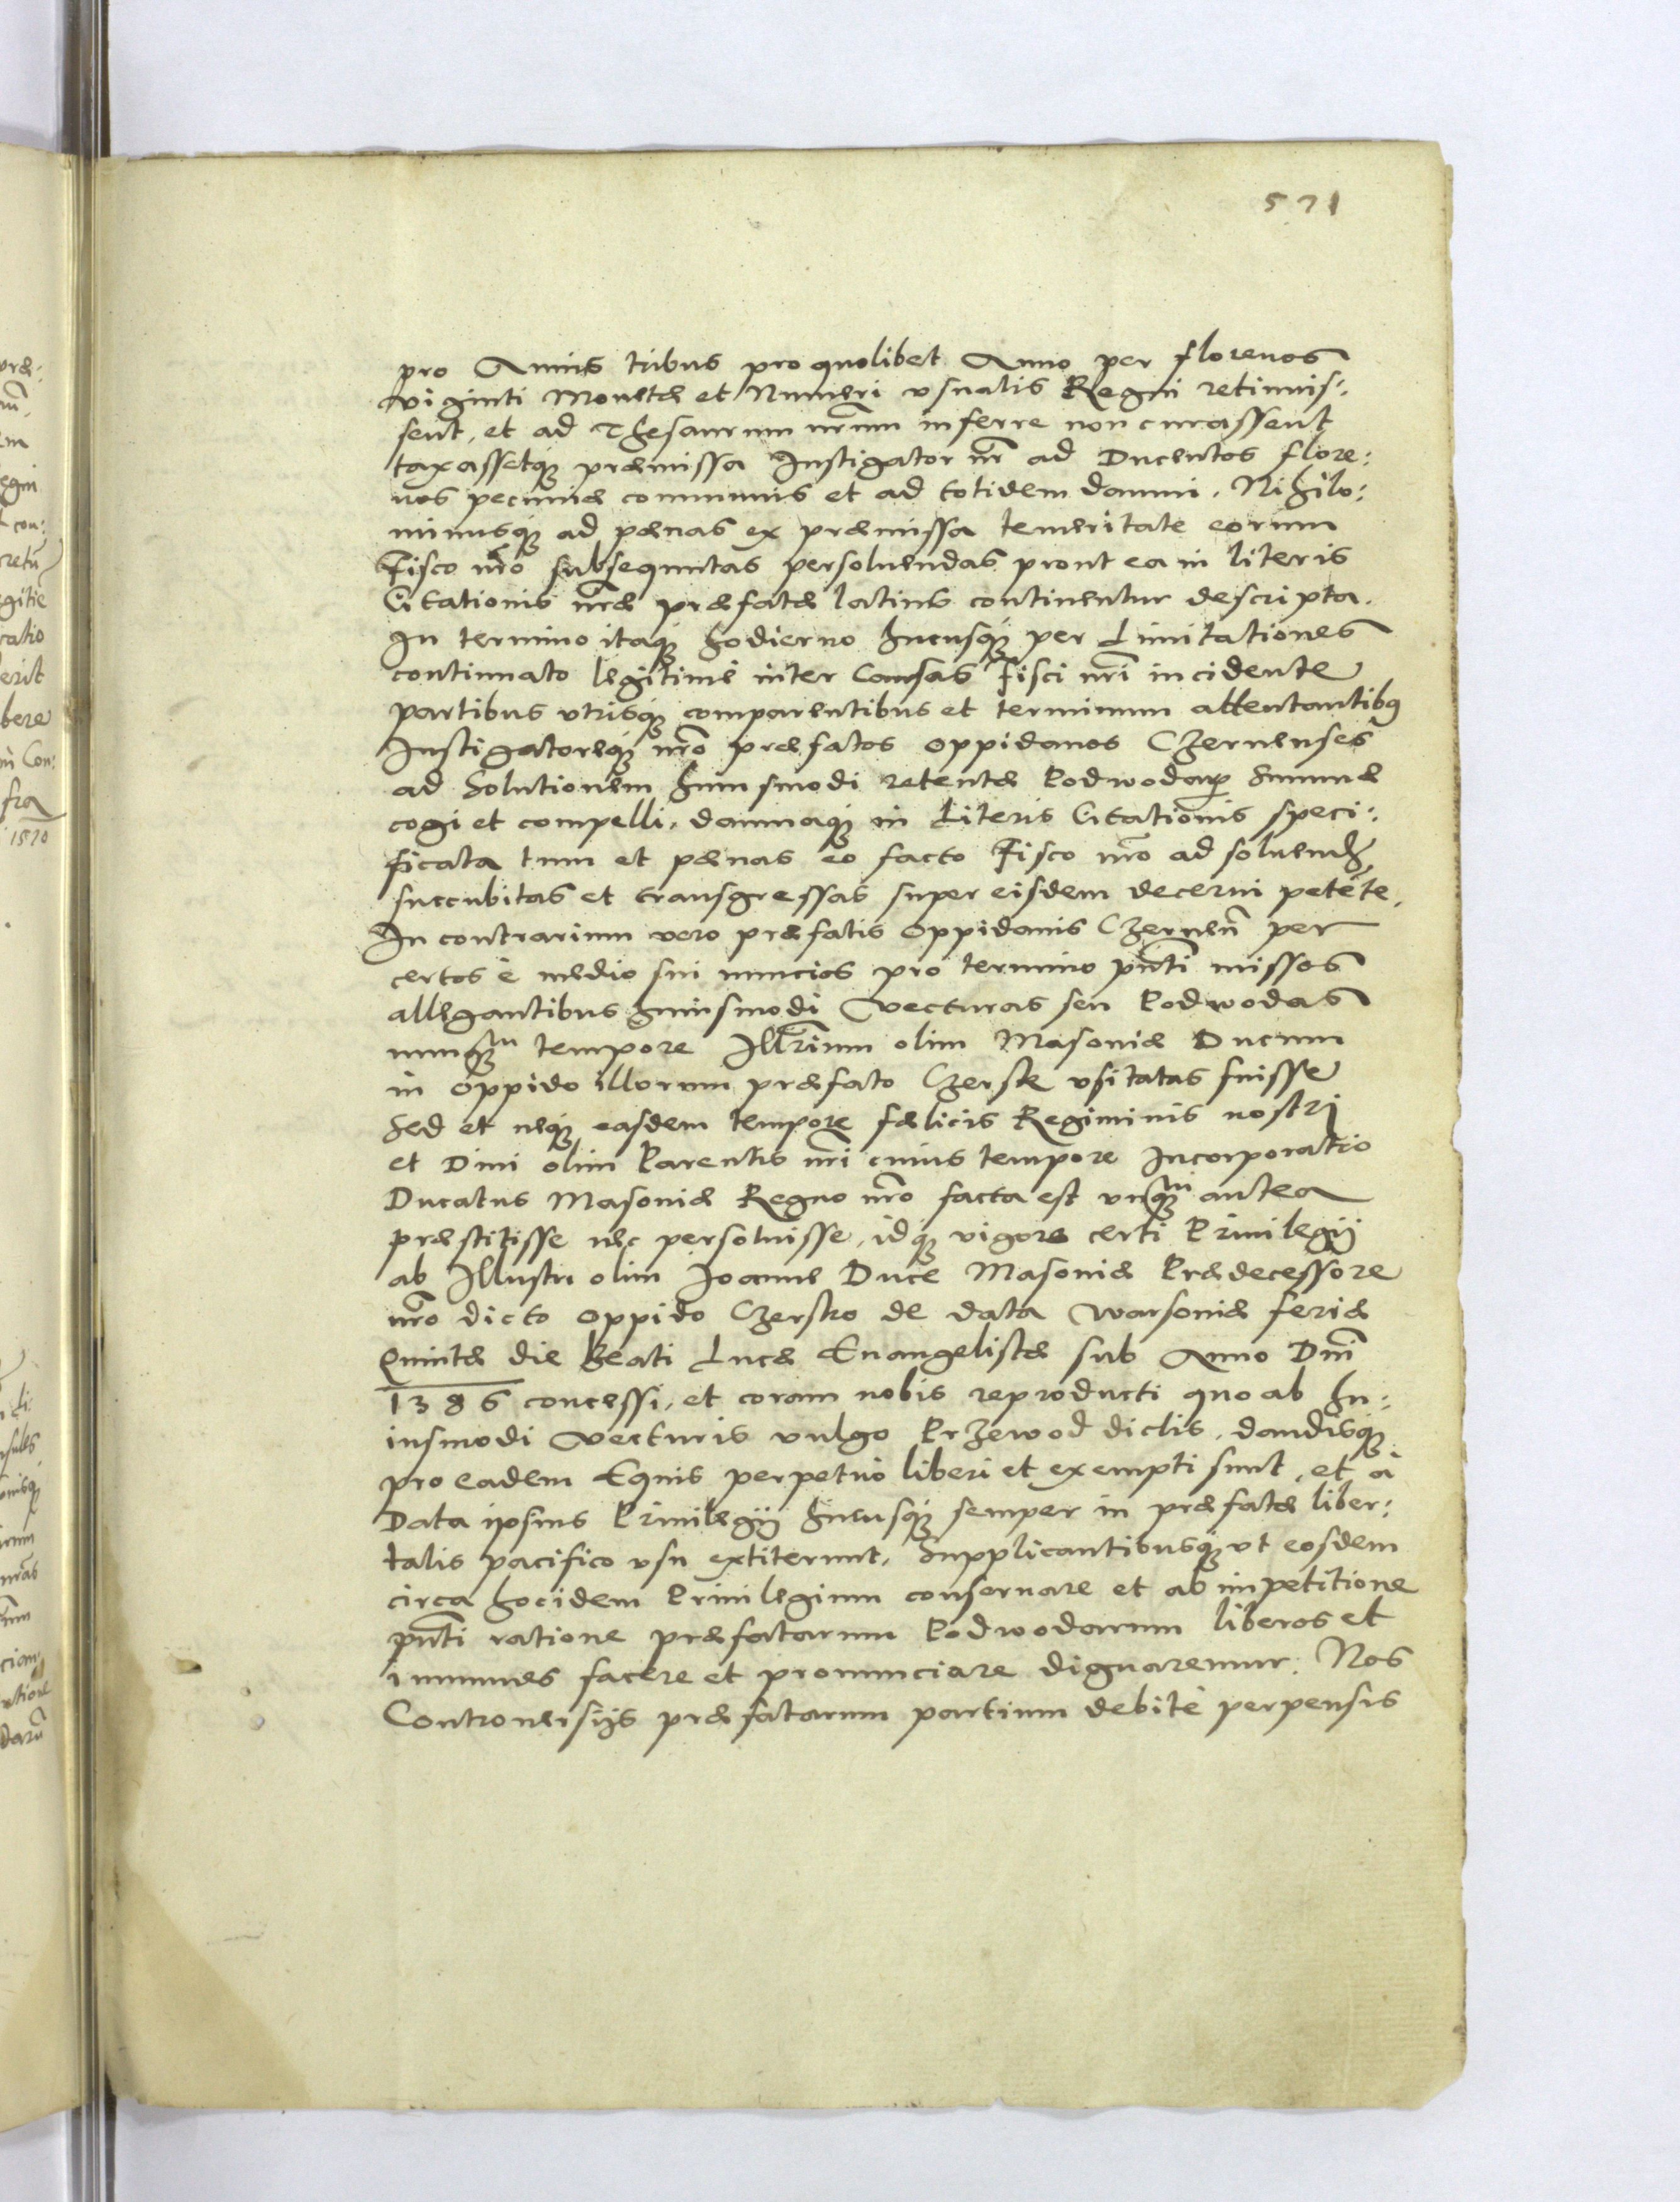 571
pro Annis tribus pro quolibet Anno per florenos
viginti Monetæ et Numeri usualis Regni retinuis:
sent, et ad Thesaurum nrm̃ inferre non curassent
taxassetq₃ præmissa Instigator nr̃ ad Ducentos flore:
nos pecuniæ communis et ad totidem damni. Nihilo:
minusq₃ ad pænas ex præmissa temeritate eorum
Fisco nr̃o subsequutas persoluendas prout ea in literis
Citationis nr̃æ præfatæ latius continentur descripta.
In termino itaq₃ hodierno hucusq₃ per Limitationes
continuato legitimè inter Causas Fisci nr̃i incidente
partibus vtrisq₃ comparentibus et terminum attentantibus
Instigatoreq₃ nr̃o præfatos oppidanos Czernenses
ad Solutionem huiusmodi retentæ Podwodaꝝ Summæ
cogi et compelli, damnaq₃ in Literis Citationis speci:
ficata tum et pænas eo facto Fisco nr̃o ad soluend̃
succubitas et transgressas super eisdem decerni petẽte.
In contrarium vero præfatis oppidanis Czerneñ per
certos è medio sui nuncios pro termino pñti missos
allegantibus huiusmodi vecturas seu Podwodas
nunq₃ᵐ tempore Illr̃ium olim Masoniæ Ducum
in oppido illorum præfato Czersk vsitatas fuisse
Sed et neq₃ easdem tempore fælicis Regiminis nostri
et Diui olim Parentis nr̃i cuius tempore Incorporatio
Ducatus Masoniæ Regno nr̃o facta est vnq₃ᵐ antea
præstitisse nec persoluisse, idq₃ vigore certi Priuilegij
ab Illustri olim Joanne Duce Masoniæ Prædecessore
nr̃o dicto oppido Czersko de data Warsoniæ feria
Quinta die Beati Lucæ Euangelistæ sub Anno Dñi
1386 concessi, et coram nobis reproducti quo ab hu:
iusmodi vecturis vulgo Przewod dictis, dandisq₃
pro eadem Equis perpetuò liberi et exempti sunt, et à
Data ipsius Priuilegij hucusq₃ semper in præfatæ liber:
talis pacifico vsu extiterunt, Supplicantibusq₃ vt eosdem
circa hocidem Priuilegium conseruare et ab impetitione
pñti ratione præfatarum Podwodarum liberos et
immunes facere et pronunciare dignaremur. Nos
Controuersijs præfatarum partium debitè perpensis